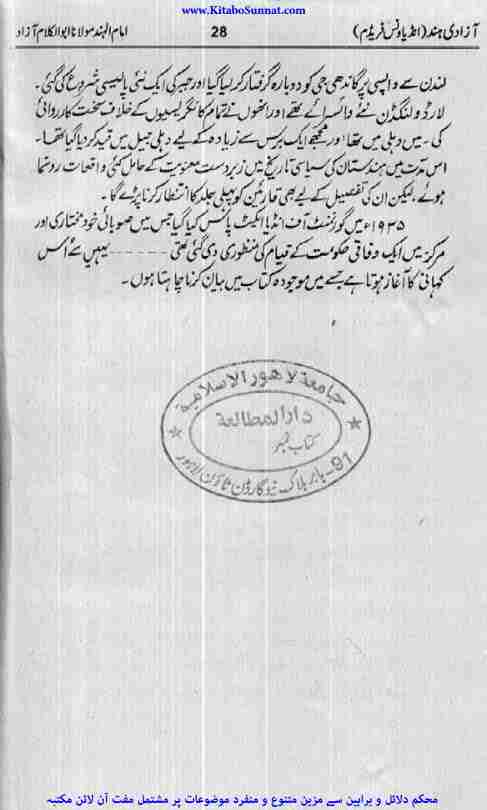 www.KitaboSunnat.com
آزادی ہند (انڈیا ونس فریڈم)
28
امام الہند مولانا ابوالکلام آزاد
لندن سے واپسی پر گاندھی جی کو دوبارہ گرفتار کر لیا گیا اور جبر کی ایک نئی پالیسی شروع کی گئی۔
لارڈ ولنگڈن نئے وائسرائے تھے اور انھوں نے تمام کانگریسیوں کے خلاف سخت کارروائی
کی۔ میں دہلی میں تھا اور مجھے ایک برس سے زیادہ کے لیے دہلی جیل میں قید کر دیا گیا تھا۔
اس مدت میں ہندستان کی سیاسی تاریخ میں زبردست معنویت کے حامل کئی واقعات رونما
ہوئے، لیکن ان کی تفصیل کے لیے بھی قارئین کو پہلی جلد کا انتظار کرنا پڑے گا۔
۱۹۳۵ء میں گورنمنٹ آف انڈیا ایکٹ پاس کیا گیا جس میں صوبائی خود مختاری اور
مرکز میں ایک وفاقی حکومت کے قیام کی منظوری دی گئی تھی ------ یہیں سے اُس
کہانی کا آغاز ہوتا ہے جسے میں موجودہ کتاب میں بیان کرنا چاہتا ہوں۔
جامعة لاهور الاسلامية
دار المطالعة
کتاب نمبر
91- بابر بلاک نیو گارڈن ٹاؤن لاہور
محکم دلائل و براہین سے مزین متنوع و منفرد موضوعات پر مشتمل مفت آن لائن مکتبہ